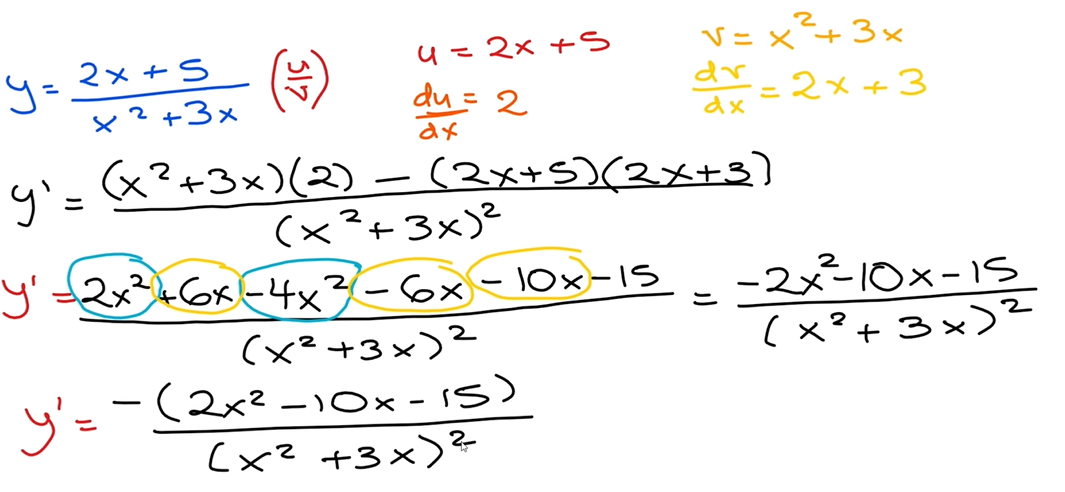 y = (2x + 5)/(x² + 3x) (u/v)
u = 2x + 5
du/dx = 2
v = x² + 3x
dv/dx = 2x + 3
y' = ((x² + 3x)(2) − (2x+5)(2x+3))/(x² + 3x)²
y' = (2x² + 6x − 4x² − 6x − 10x − 15)/(x² + 3x)² = (−2x² − 10x − 15)/(x² + 3x)²
y' = −(2x² − 10x − 15)/(x² + 3x)²